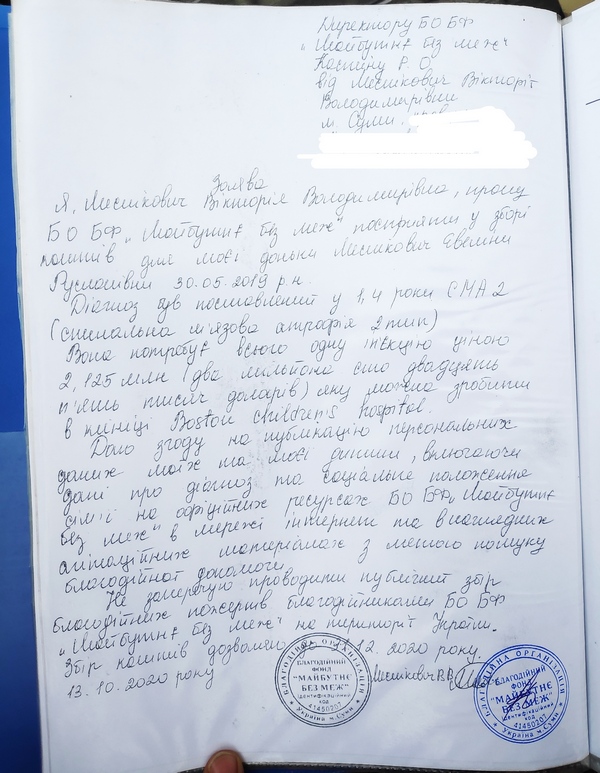 Директору БО БФ
„Майбутнє без меж"
Костіну Р. О.
від Меснікович Вікторії
Володимирівни
м. Суми,
Заява
Я, Меснікович Вікторія Володимирівна, прошу
БО БФ „Майбутнє без меж" посприяти у зборі
коштів для моєї доньки Меснікович Евеліни
Русланівни 30.05.2019 р.н.
Діагноз був поставлений у 1,4 роки СМА 2
(спинальна м'язова атрофія 2 тип)
Вона потребує всього одну ін'єкцію ціною
2,125 млн (два мільйона сто двадцять
п'ять тисяч доларів) яку можна зробити
в клініці Boston Children's Hospital.
Даю згоду на публікацію персональних
даних моїх та моєї дитини, включаючи
дані про діагноз та соціальне положення
сім'ї на офіційних ресурсах БО БФ „Майбутнє
без меж" в мережі інтернет та в наглядних
агітаційних матеріалах з метою пошуку
благодійної допомоги.
Не заперечую проводити публічний збір
благодійних пожертв благодійниками БО БФ
„Майбутнє без меж" на території України.
Збір коштів дозволено до 12. 2020 року.
13.10.2020 року
Меснікович В.В.
БЛАГОДІЙНА ОРГАНІЗАЦІЯ
БЛАГОДІЙНИЙ
ФОНД
"МАЙБУТНЄ
БЕЗ МЕЖ"
Ідентифікаційний
код
41450207
* Україна м.Суми *
БЛАГОДІЙНА ОРГАНІЗАЦІЯ
БЛАГОДІЙНИЙ
ФОНД
"МАЙБУТНЄ
БЕЗ МЕЖ"
Ідентифікаційний
код
41450207
* Україна м.Суми *